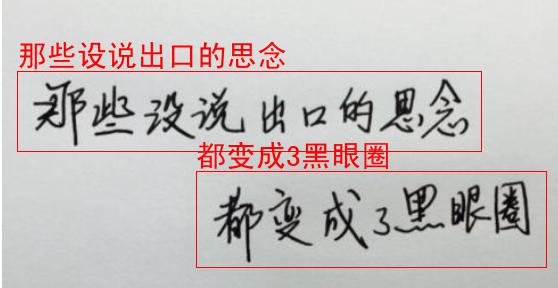 那些设说出口的思念
那些没说出口的思念
都变成3黑眼圈
都变成了黑眼圈